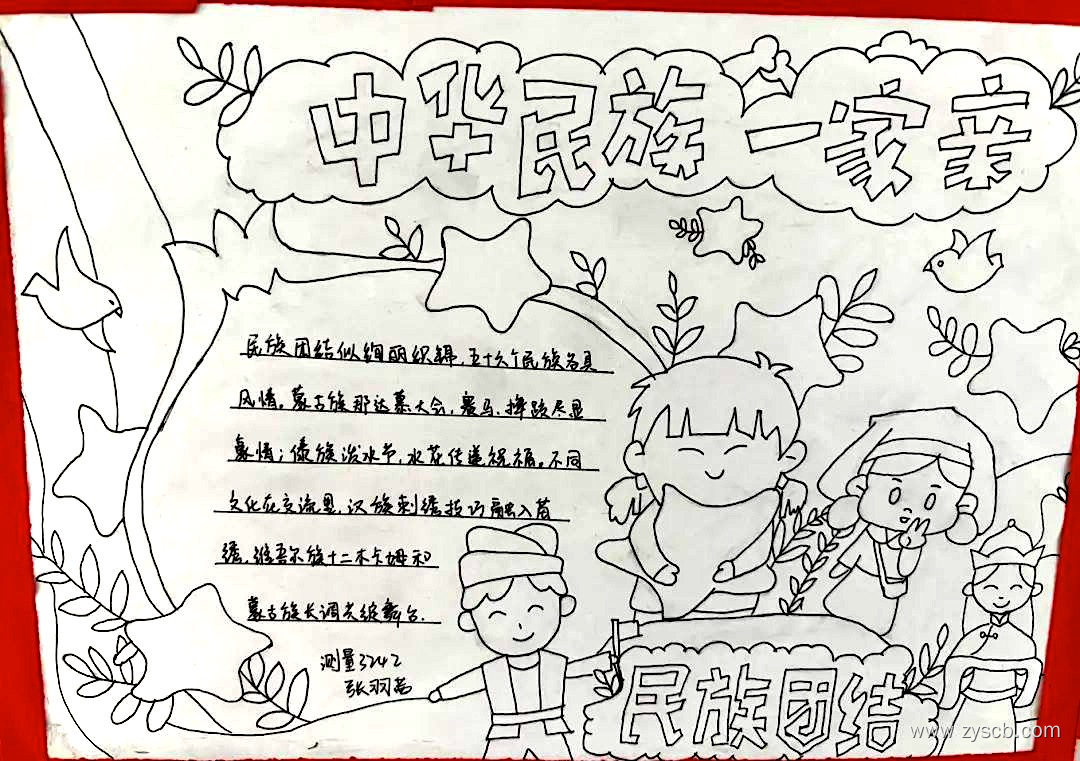 中华民族一家亲
民族团结似绚丽织锦，五十六个民族各具
风情。蒙古族那达慕大会，赛马、摔跤尽显
豪情；傣族泼水节，水花传递祝福。不同
文化在交流里，汉族刺绣技巧融入苗
绣，维吾尔族十二木卡姆和
蒙古族长调共绽舞台.
测量3242
张羽
民族团结
www.zyscb.com